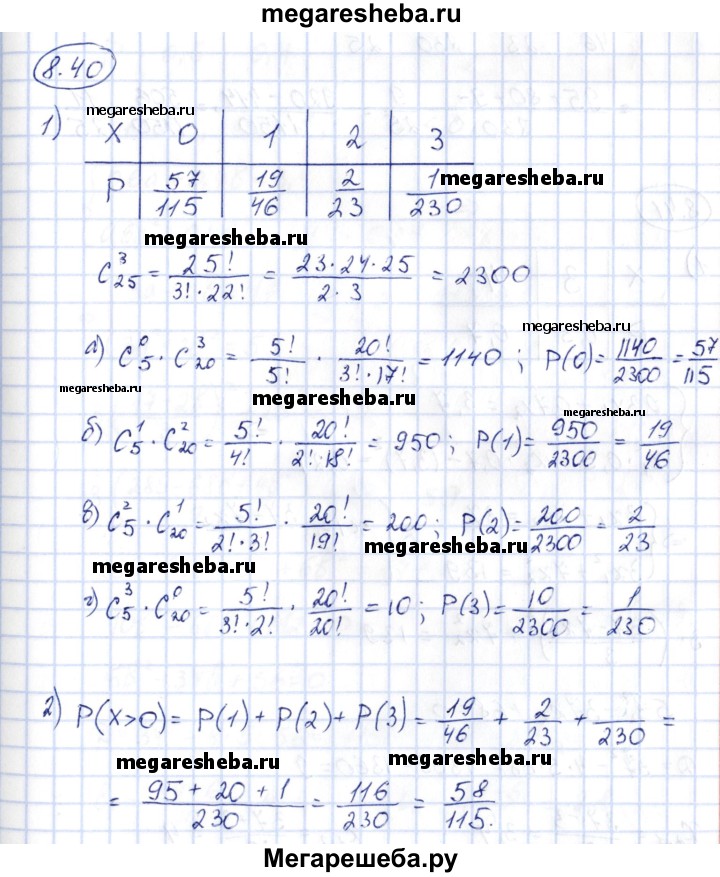 megaresheba.ru
8.40
megaresheba.ru
1) X | 0 | 1 | 2 | 3
P | 57/115 | 19/46 | 2/23 | 1/230
megaresheba.ru
megaresheba.ru
C₂₅³ = 25!/(3!·22!) = (23·24·25)/(2·3) = 2300
megaresheba.ru
а) C₅⁰ · C₂₀³ = 5!/5! · 20!/(3!·17!) = 1140 ; P(0) = 1140/2300 = 57/115
megaresheba.ru
megaresheba.ru
megaresheba.ru
б) C₅¹ · C₂₀² = 5!/4! · 20!/(2!·18!) = 950 ; P(1) = 950/2300 = 19/46
в) C₅² · C₂₀¹ = 5!/(2!·3!) · 20!/19! = 200 ; P(2) = 200/2300 = 2/23
megaresheba.ru
megaresheba.ru
г) C₅³ · C₂₀⁰ = 5!/(3!·2!) · 20!/20! = 10 ; P(3) = 10/2300 = 1/230
2) P(X>0) = P(1) + P(2) + P(3) = 19/46 + 2/23 + /230 =
megaresheba.ru
megaresheba.ru
= (95 + 20 + 1)/230 = 116/230 = 58/115.
Мегарешеба.ру